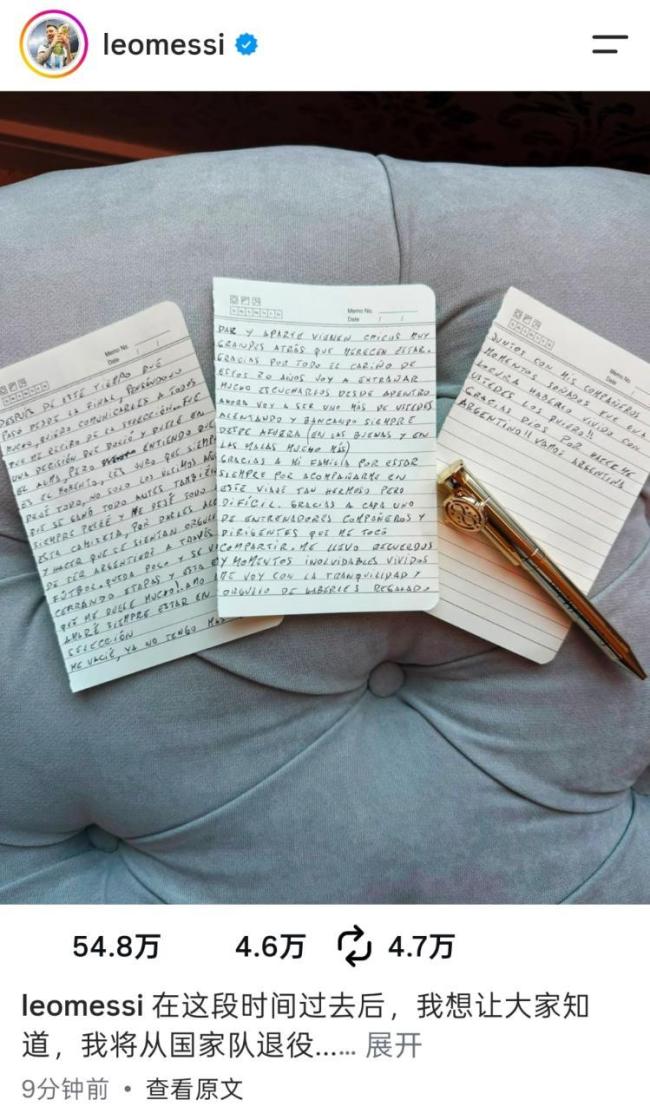 leomessi
Memo No.
Date / /
DESPUÉS DE ESTE TIEMPO QUE
PASÓ DESDE LA FINAL, PENSÁNDOLO
MUCHO, QUIERO COMUNICARLES A TODOS
QUE ME RETIRO DE LA SELECCIÓN. FUE
UNA DECISIÓN QUE DOLIÓ Y DUELE EN
EL ALMA, PERO ENTIENDO QUE
ES EL MOMENTO. LES JURO QUE SIEMPRE
DEJÉ TODO, NO SOLO LOS ÚLTIMOS AÑOS
QUE SE GANÓ TODO, ANTES TAMBIÉN
SIEMPRE PELEÉ Y ME DEJÉ TODO
ESTA CAMISETA, POR DARLES
Y HACER QUE SE SIENTAN
DE SER ARGENTINOS A TRAVÉS
FÚTBOL. QUEDA POCO Y SE
CERRANDO ETAPAS Y ESTA
QUE ME DUELE MUCHO! AMO
AMARÉ SIEMPRE ESTAR EN
SELECCIÓN
ME VACIÉ, YA NO TENGO
Memo No.
Date / /
DAR Y APARTE VIENEN CHICOS MUY
GRANDES ATRÁS QUE MERECEN ESTAR.
GRACIAS POR TODO EL CARIÑO DE
ESTOS 20 AÑOS VOY A EXTRAÑAR
MUCHO ESCUCHARLOS DESDE ADENTRO
AHORA VOY A SER UNO MÁS DE USTEDES
ALENTANDO Y BANCANDO SIEMPRE
DESDE AFUERA (EN LAS BUENAS Y EN
LAS MALAS MUCHO MÁS)
GRACIAS A MI FAMILIA POR ESTAR
SIEMPRE POR ACOMPAÑARME EN
ESTE VIAJE TAN HERMOSO PERO
DIFÍCIL. GRACIAS A CADA UNO
DE ENTRENADORES COMPAÑEROS Y
DIRIGENTES QUE ME TOCÓ
COMPARTIR. ME LLEVO RECUERDOS
Y MOMENTOS INOLVIDABLES VIVIDOS
ME VOY CON LA TRANQUILIDAD Y
ORGULLO DE HABERLES REGALADO
Memo No.
Date / /
JUNTOS CON MIS COMPAÑEROS
MOMENTOS SOÑADOS FUE UNA
LOCURA HABERLO VIVIDO CON
USTEDES LOS QUIERO!!
GRACIAS DIOS POR HACERME
ARGENTINO!! VAMOS ARGENTINA
54.8万 4.6万 4.7万
leomessi 在这段时间过去后，我想让大家知
道，我将从国家队退役...... 展开
9分钟前 • 查看原文